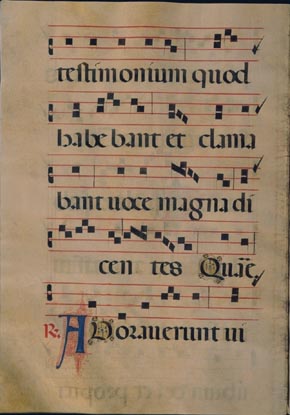 testimonium quod
habebant et clama
bant uoce magna di
centes Quare
R. Adorauerunt ui